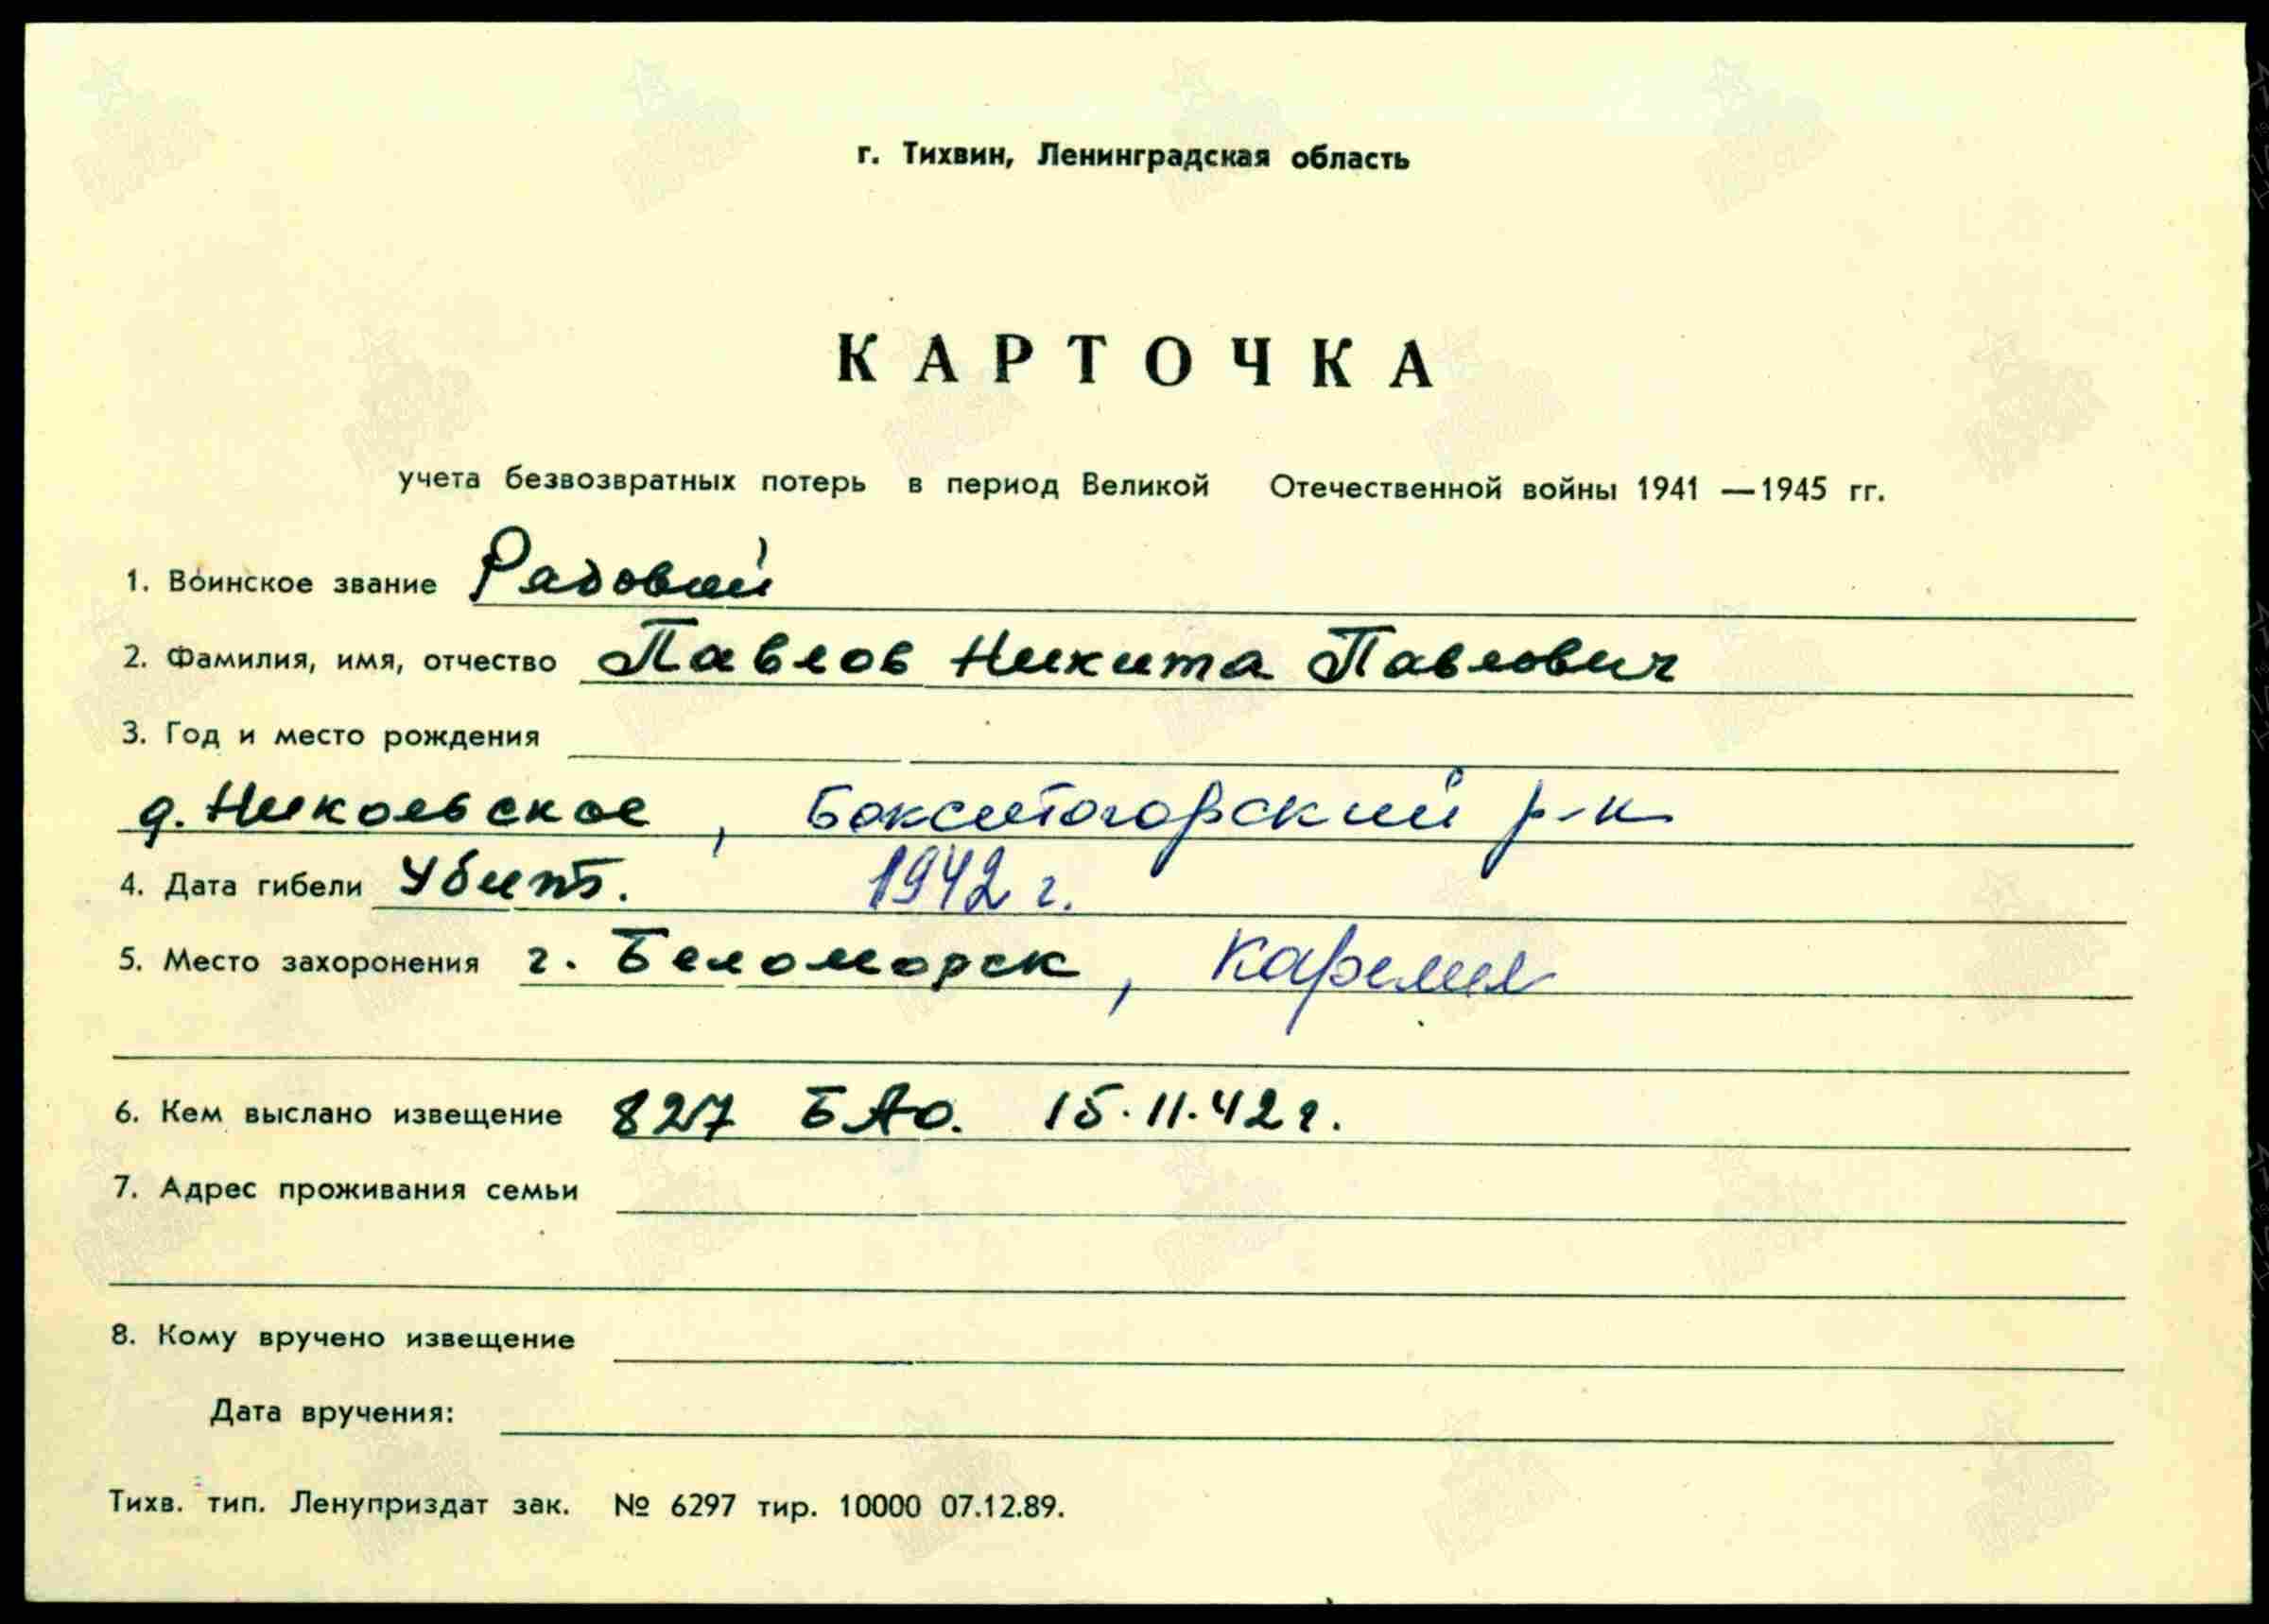 г. Тихвин, Ленинградская область
КАРТОЧКА
учета безвозвратных потерь в период Великой Отечественной войны 1941 —1945 гг.
1. Воинское звание Рядовой
2. Фамилия, имя, отчество Павлов Никита Павлович
3. Год и место рождения
д. Никольское, Бокситогорский р-н
4. Дата гибели Убит. 1942 г.
5. Место захоронения г. Беломорск, Карелия
6. Кем выслано извещение 827 БАО. 15.11.42 г.
7. Адрес проживания семьи
8. Кому вручено извещение
Дата вручения:
Тихв. тип. Ленуприздат зак. № 6297 тир. 10000 07.12.89.